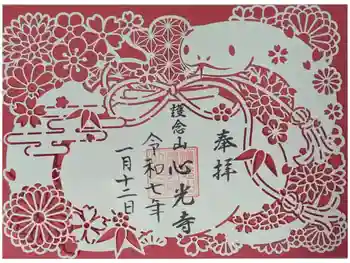 奉拝
護念山
心光寺
令和七年
一月十二日